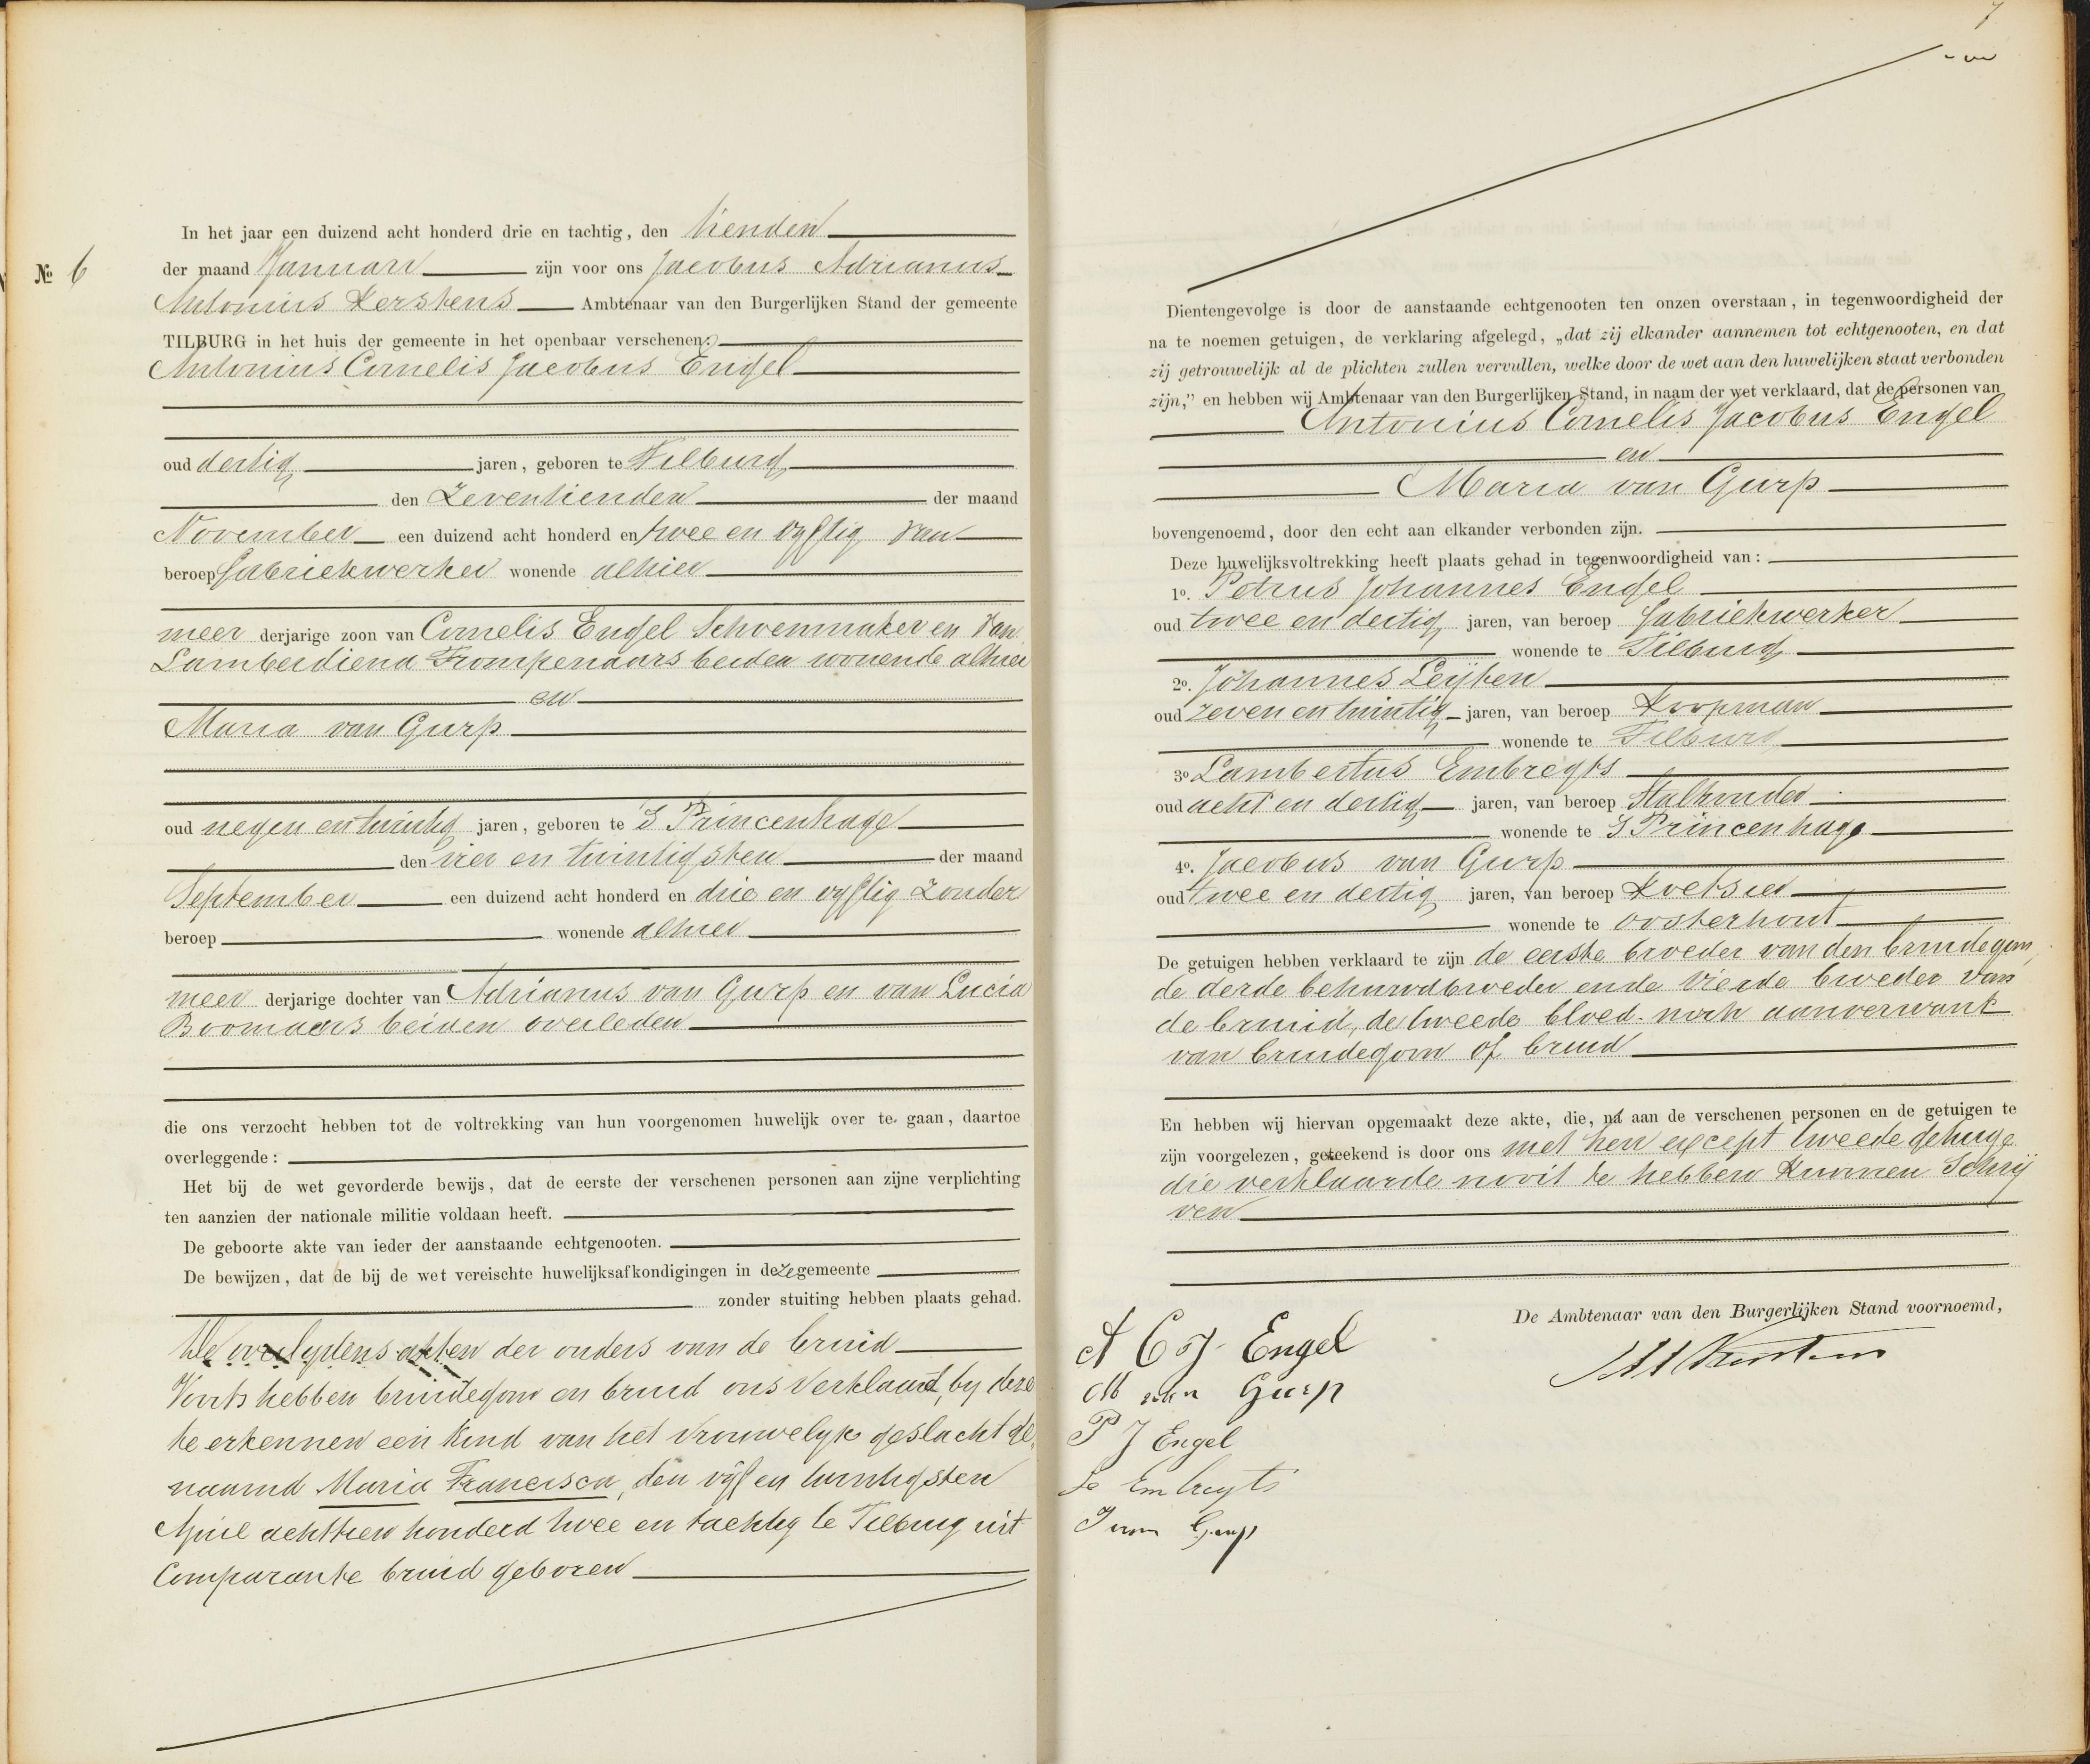 In het jaar een duizend acht honderd drie en tachtig, den tienden
No 6
der maand Januari zijn voor ons Jacobus Adrianus
Antonius Kerstens Ambtenaar van den Burgerlijken Stand der gemeente
TILBURG in het huis der gemeente in het openbaar verschenen:
Antonius Cornelis Jacobus Engel
oud dertig jaren, geboren te Tilburg
den Zeventienden der maand
November een duizend acht honderd en twee en vyftig van
beroep fabriekwerker wonende alhier
meer derjarige zoon van Cornelis Engel Schoenmaker en van
Lamberdiena Trompenaars beiden wonende alhier
en
Maria van Gurp
oud negen en twintig jaren, geboren te 'S Princenhage
den vier en twintigsten der maand
September een duizend acht honderd en drie en vyftig zonder
beroep wonende alhier
meer derjarige dochter van Adrianus van Gurp en van Lucia
Boomaars beiden overleden
die ons verzocht hebben tot de voltrekking van hun voorgenomen huwelijk over te gaan, daartoe
overleggende:
Het bij de wet gevorderde bewijs, dat de eerste der verschenen personen aan zijne verplichting
ten aanzien der nationale militie voldaan heeft.
De geboorte akte van ieder der aanstaande echtgenooten.
De bewijzen, dat de bij de wet vereischte huwelijksafkondigingen in deze gemeente
zonder stuiting hebben plaats gehad.
De overlydens akten der ouders van de bruid
Voorts hebben bruidegom en bruid ons verklaard, by deze
te erkennen een kind van het vrouwelyk geslacht ge,
naamd Maria Francisca, den vyf en twintigsten
April achttien honderd twee en tachtig te Tilburg uit
Comparante bruid geboren
7
Dientengevolge is door de aanstaande echtgenooten ten onzen overstaan, in tegenwoordigheid der
na te noemen getuigen, de verklaring afgelegd, „dat zij elkander aannemen tot echtgenooten, en dat
zij getrouwelijk al de plichten zullen vervullen, welke door de wet aan den huwelijken staat verbonden
zijn,” en hebben wij Ambtenaar van den Burgerlijken Stand, in naam der wet verklaard, dat de personen van
Antonius Cornelis Jacobus Engel
en
Maria van Gurp
bovengenoemd, door den echt aan elkander verbonden zijn.
Deze huwelijksvoltrekking heeft plaats gehad in tegenwoordigheid van:
1o. Petrus Johannes Engel
oud twee en dertig jaren, van beroep fabriekwerker
wonende te Tilburg
2o. Johannes Leijten
oud zeven en twintig jaren, van beroep Koopman
wonende te Tilburg
3o Lambertus Embregts
oud acht en dertig jaren, van beroep Stalhouder
wonende te 'S Princenhage
4o. Jacobus van Gurp
oud twee en dertig jaren, van beroep Koetsier
wonende te Oosterhout
De getuigen hebben verklaard te zijn de eerste broeder van den bruidegom,
de derde behuwdbroeder en de vierde broeder van
de bruid, de tweede bloed- noch aanverwant
van bruidegom of bruid
En hebben wij hiervan opgemaakt deze akte, die, ná aan de verschenen personen en de getuigen te
zijn voorgelezen, geteekend is door ons met hen except tweede getuige
die verklaarde nooit te hebben kunnen Schrij
ven
De Ambtenaar van den Burgerlijken Stand voornoemd,
A C J Engel
M van Gurp
P J Engel
Embregts
J van Gurp